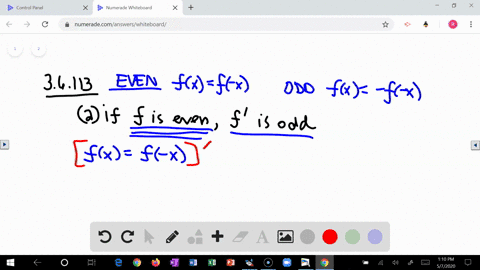 Control Panel
Numerade Whiteboard
numerade.com/answers/whiteboard/
1
2
3.6.113 EVEN f(x)=f(-x) ODD f(x)= -f(-x)
(a) if f is even, f' is odd
[f(x) = f(-x)]'
1:10 PM
5/7/2020